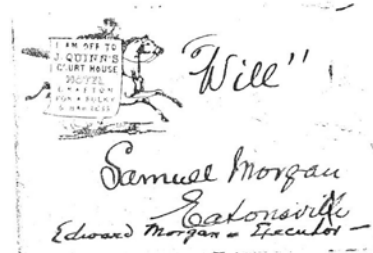 I AM OFF TO
J. QUINN'S
COURT HOUSE
HOTEL
FOR A SULKY
& HARNESS
"Will"
Samuel Morgan
Eatonsville
Edward Morgan = Executor —